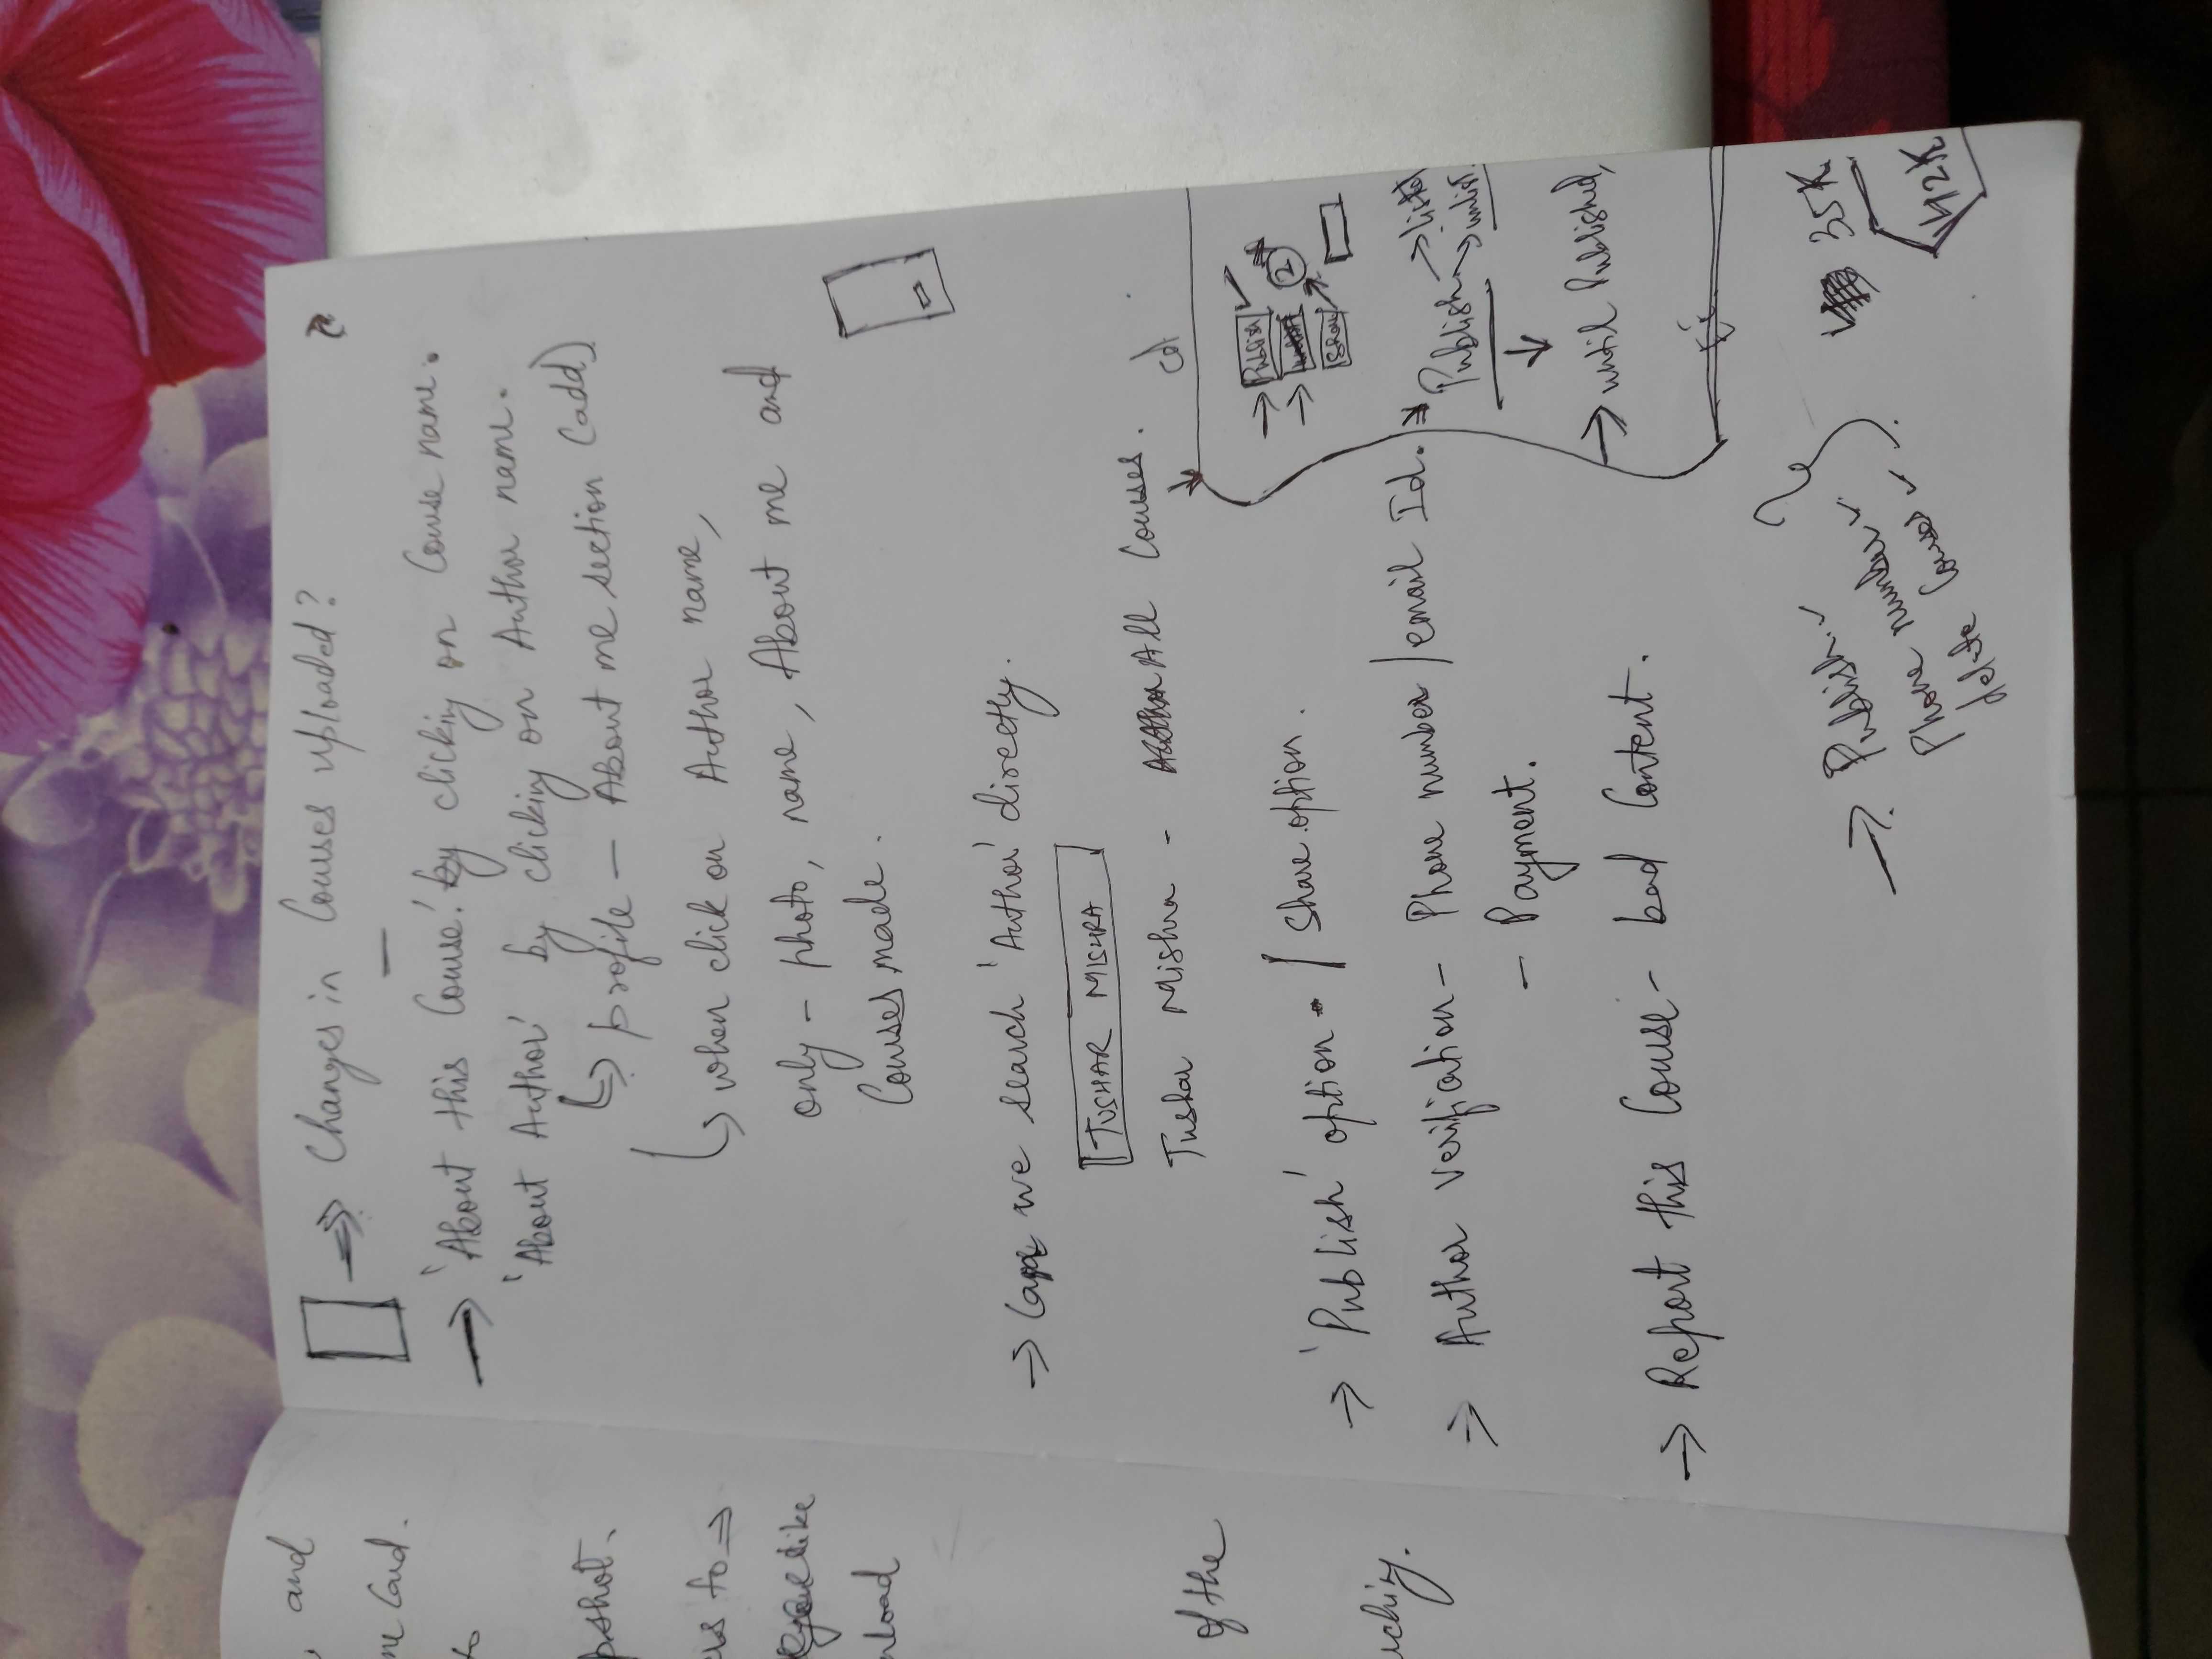 , and
Card.
pshot.
to
like
nload
of the
Changes in Courses uploaded?
'About this Course' by clicking on Course name.
'About Author' by clicking on Author name.
profile - About me section (add)
when click on Author name,
only - photo, name, About me and
Courses made.
we search 'Author' directly.
TUSHAR MISHRA
Tushar Mishra - All Courses.
'Publish' option / Share option.
Author Verification - Phone number/email Id.
- Payment.
Report this Course - bad Content.
Publish
2
Publish
list
unlist.
until Published,
Publish.
Phone number
delete Courses
35K
42K